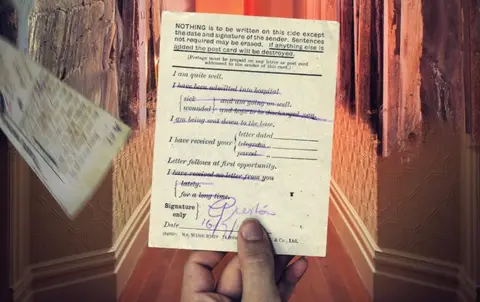 NOTHING is to be written on this side except
the date and signature of the sender. Sentences
not required may be erased. If anything else is
added the post card will be destroyed.
(Postage must be prepaid on any letter or post card
addressed to the sender of this card.)
I am quite well.
I have been admitted into hospital
sick and am going on well.
wounded and hope to be discharged soon.
I am being sent down to the base.
letter dated
I have received your telegram
parcel
Letter follows at first opportunity.
I have received no letter from you
lately.
for a long time.
Signature
only
Date
& Co., Ltd.